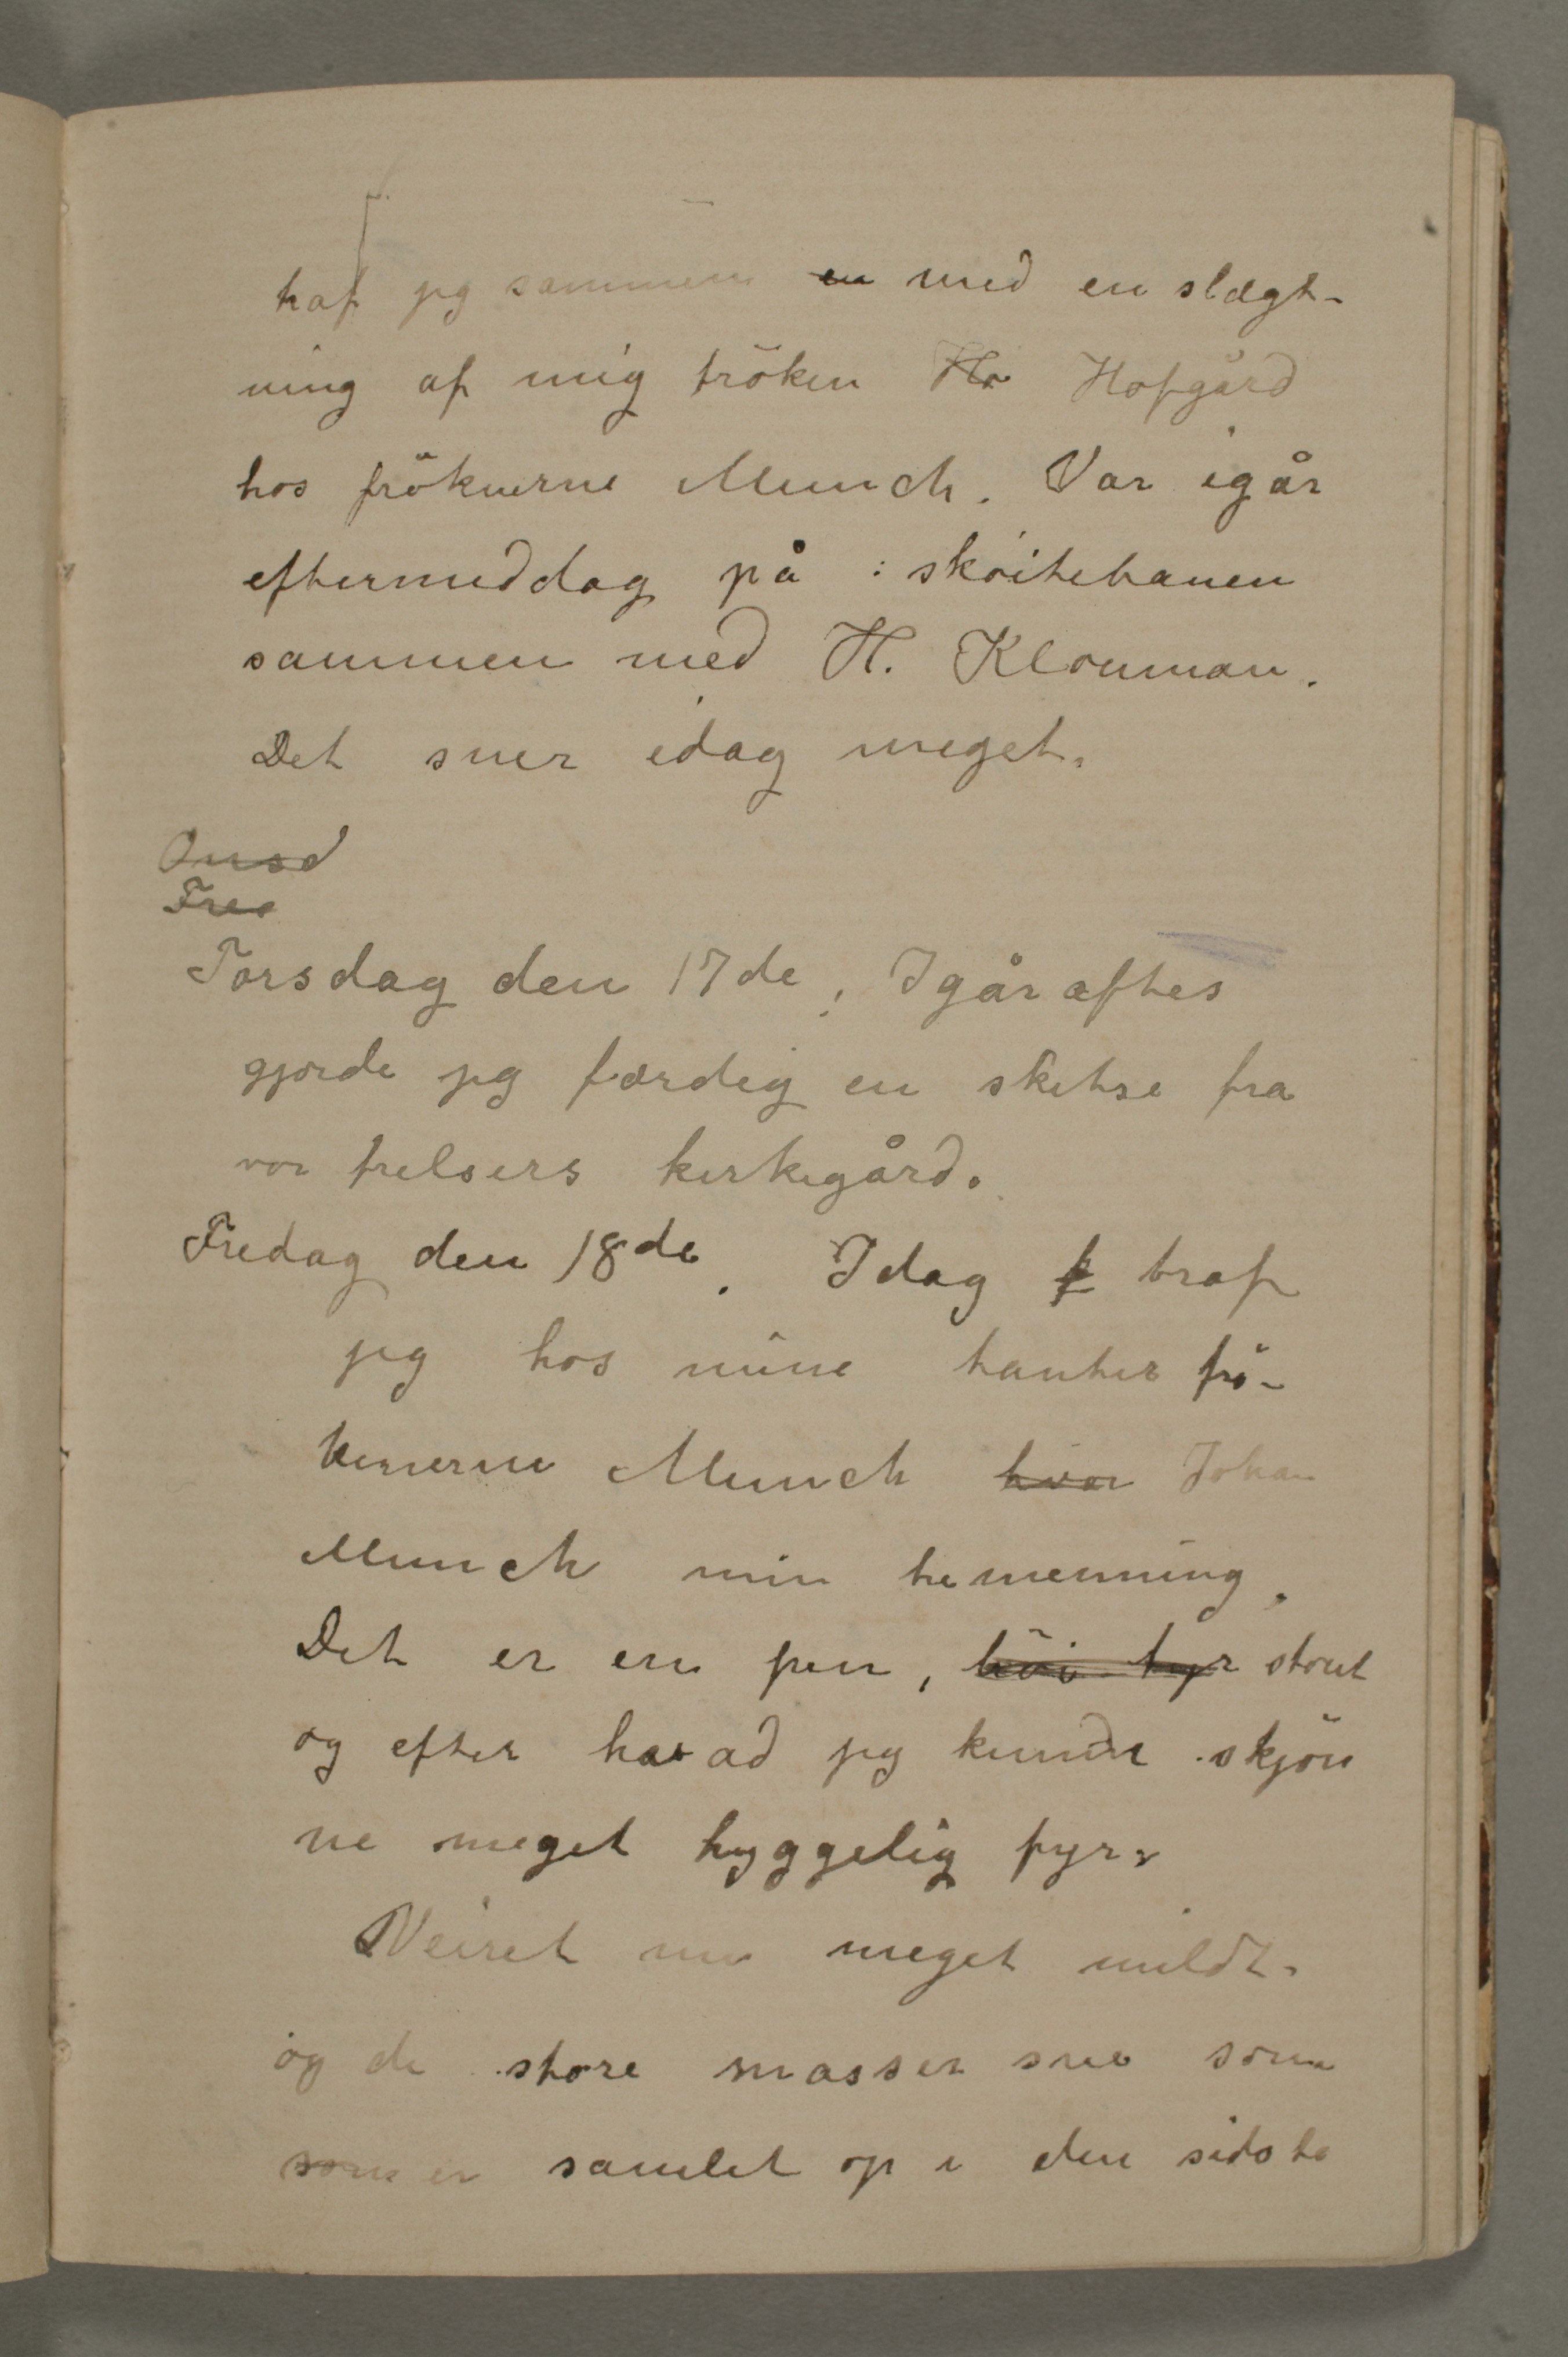 traf jeg sammen en med en slægt-
ning af mig fröken Ho Hofgård
hos fröknerne Munch. Var igår
eftermiddag på : skøitebanen
sammen med H. Klouman.
Det sner idag meget.
Onsd
Fred
Torsdag den 17de, Igår aftes
gjorde jeg færdig en skitse fra
vor frelsers kirkegård.
Fredag den 18de. Idag f traf
jeg hos mine tanter frö-
kenerne Munch hvor Johan
Munch min tremenning.
Det er en pen, höi fyr stout
og efter hvad jeg kunde skjön
ne meget hyggelig fyr.
Veiret nu meget mildt.
og de store masser sne som
som er samlet op i den sidste